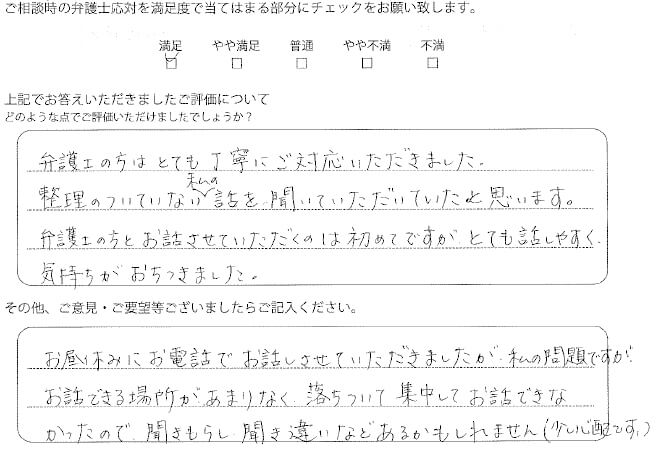 ご相談時の弁護士応対を満足度で当てはまる部分にチェックをお願い致します。
満足 やや満足 普通 やや不満 不満
上記でお答えいただきましたご評価について
どのような点でご評価いただけましたでしょうか?
弁護士の方はとても丁寧にご対応いただきました。
整理のついていない私の話を聞いていただいていたと思います。
弁護士の方とお話させていただくのは初めてですがとても話しやすく
気持ちがおちつきました。
その他、ご意見・ご要望等ございましたらご記入ください。
お昼休みにお電話でお話しさせていただきましたが、私の問題ですが
お話できる場所があまりなく、落ちついて集中してお話できな
かったので、聞きもらし、聞き違いなどあるかもしれません(少し心配です。)